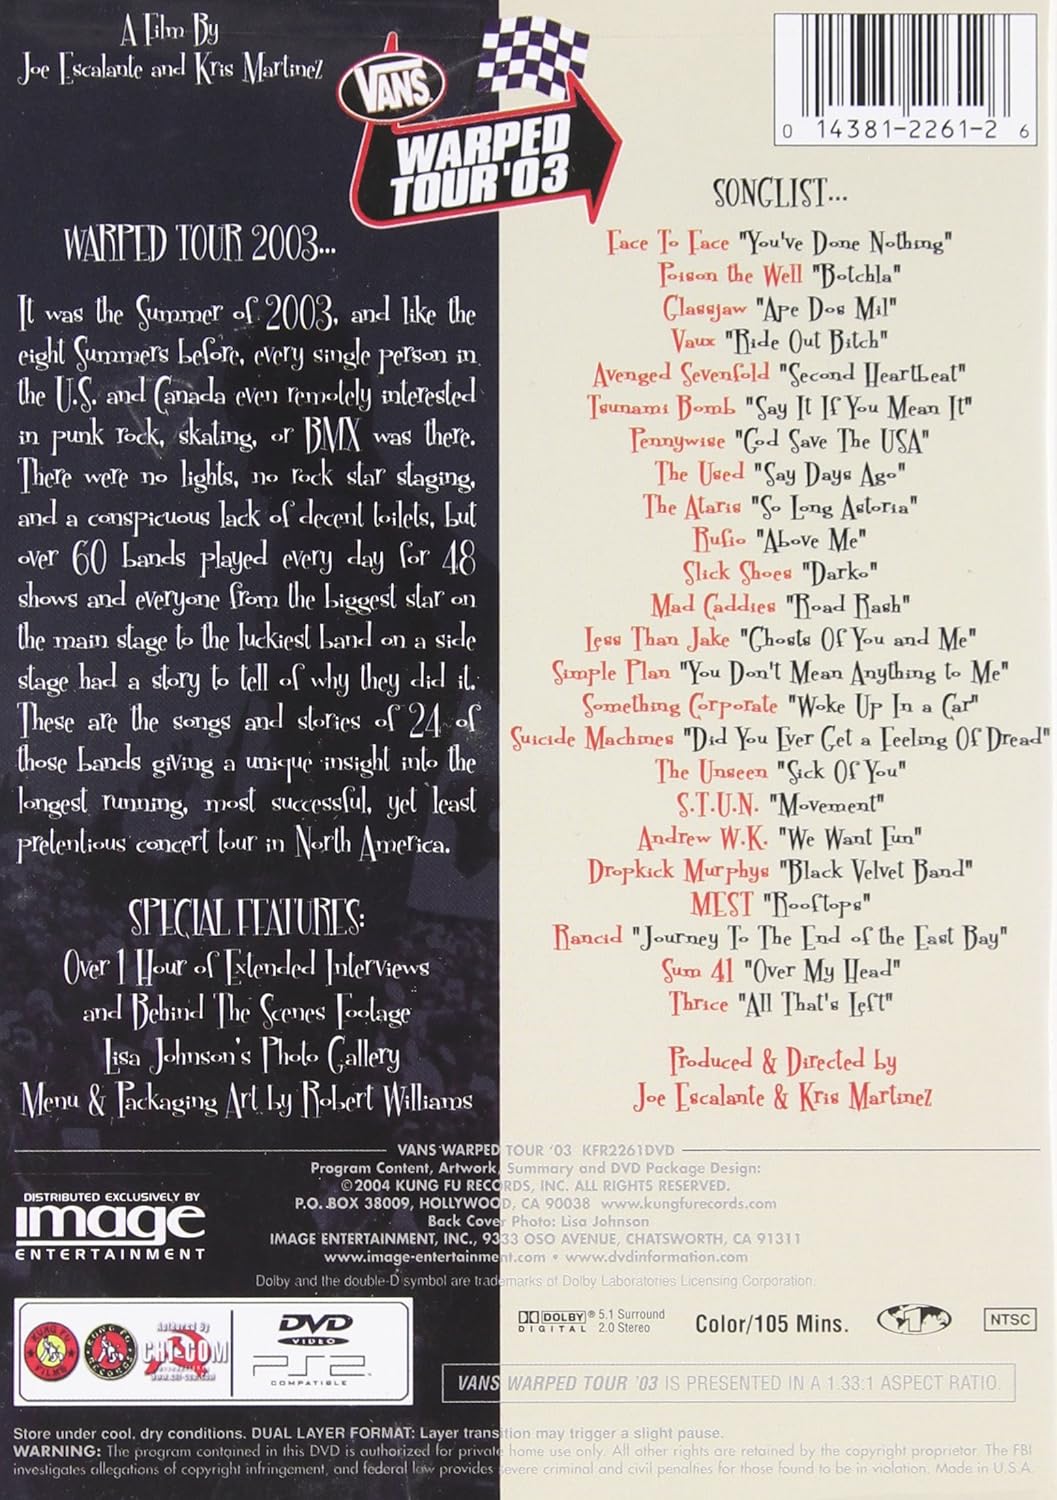 A Film By
Joe Escalante and Kris Martinez
VANS
WARPED
TOUR '03
0 14381-2261-2 6
WARPED TOUR 2003...
It was the Summer of 2003, and like the
eight Summers before, every single person in
the U.S. and Canada even remotely interested
in punk rock, skating, or BMX was there.
There were no lights, no rock star staging,
and a conspicuous lack of decent toilets, but
over 60 bands played every day for 48
shows and everyone from the biggest star on
the main stage to the luckiest band on a side
stage had a story to tell of why they did it.
These are the songs and stories of 24 of
those bands giving a unique insight into the
longest running, most successful, yet least
pretentious concert tour in North America.
SPECIAL FEATURES:
Over 1 Hour of Extended Interviews
and Behind The Scenes Footage
Lisa Johnson's Photo Gallery
Menu & Packaging Art by Robert Williams
SONGLIST...
Face To Face "You've Done Nothing"
Poison the Well "Botchla"
Glassjaw "Ape Dos Mil"
Vaux "Ride Out Bitch"
Avenged Sevenfold "Second Heartbeat"
Tsunami Bomb "Say It If You Mean It"
Pennywise "God Save The USA"
The Used "Say Days Ago"
The Ataris "So Long Astoria"
Rufio "Above Me"
Slick Shoes "Darko"
Mad Caddies "Road Rash"
Less Than Jake "Ghosts Of You and Me"
Simple Plan "You Don't Mean Anything to Me"
Something Corporate "Woke Up In a Car"
Suicide Machines "Did You Ever Get a Feeling Of Dread"
The Unseen "Sick Of You"
S.T.U.N. "Movement"
Andrew W.K. "We Want Fun"
Dropkick Murphys "Black Velvet Band"
MEST "Rooftops"
Rancid "Journey To The End of the East Bay"
Sum 41 "Over My Head"
Thrice "All That's Left"
Produced & Directed by
Joe Escalante & Kris Martinez
VANS WARPED TOUR '03 KFR2261DVD
Program Content, Artwork, Summary and DVD Package Design:
©2004 KUNG FU RECORDS, INC. ALL RIGHTS RESERVED.
P.O. BOX 38009, HOLLYWOOD, CA 90038 www.kungfurecords.com
Back Cover Photo: Lisa Johnson
IMAGE ENTERTAINMENT, INC., 9333 OSO AVENUE, CHATSWORTH, CA 91311
www.image-entertainment.com • www.dvdinformation.com
Dolby and the double-D symbol are trademarks of Dolby Laboratories Licensing Corporation.
DISTRIBUTED EXCLUSIVELY BY
image
ENTERTAINMENT
KUNG FU
FILMS
KUNG FU
RECORDS
Authored by
CHI-COM
DVD
VIDEO
PS2
COMPATIBLE
DOLBY
DIGITAL
® 5.1 Surround
2.0 Stereo
Color/105 Mins.
1
NTSC
VANS WARPED TOUR '03 IS PRESENTED IN A 1.33:1 ASPECT RATIO.
Store under cool, dry conditions. DUAL LAYER FORMAT: Layer transition may trigger a slight pause.
WARNING: The program contained in this DVD is authorized for private home use only. All other rights are retained by the copyright proprietor. The FBI
investigates allegations of copyright infringement, and federal law provides severe criminal and civil penalties for those found to be in violation. Made in U.S.A.